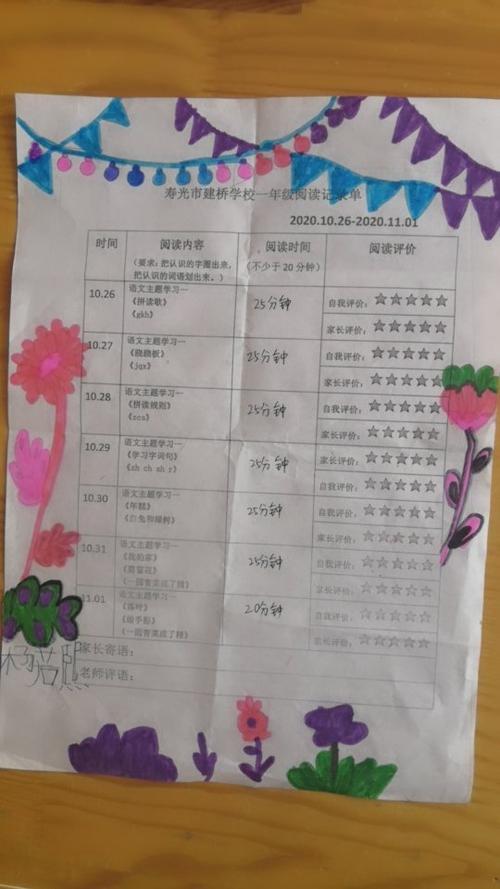 寿光市建桥学校一年级阅读记录单
2020.10.26-2020.11.01
时间 阅读内容 阅读时间 阅读评价
（要求：把认识的字圈出来，把认识的词语划出来。） （不少于20分钟）
10.26 语文主题学习一 25分钟 自我评价：☆☆☆☆☆
《拼读歌》
《gkh》 家长评价：☆☆☆☆☆
10.27 语文主题学习一 25分钟 自我评价：☆☆☆☆☆
《跷跷板》
《jqx》 家长评价：☆☆☆☆☆
10.28 语文主题学习一 25分钟 自我评价：☆☆☆☆☆
《拼读规则》
《zcs》 家长评价：☆☆☆☆☆
10.29 语文主题学习一 25分钟 家长评价：☆☆☆☆☆
《学习字词句》
《zh ch sh r》 自我评价：☆☆☆☆☆
10.30 语文主题学习一 25分钟 自我评价：☆☆☆☆☆
《年糕》
《白兔和绿树》 家长评价：☆☆☆☆☆
10.31 语文主题学习一 25分钟 自我评价：☆☆☆☆☆
《我的家》
《一园青菜成了精》 家长评价：☆☆☆☆☆
11.01 语文主题学习一 20分钟 自我评价：☆☆☆☆☆
《落叶》
《做手影》
《一园青菜成了精》 家长评价：☆☆☆☆☆
家长寄语：
老师评语：